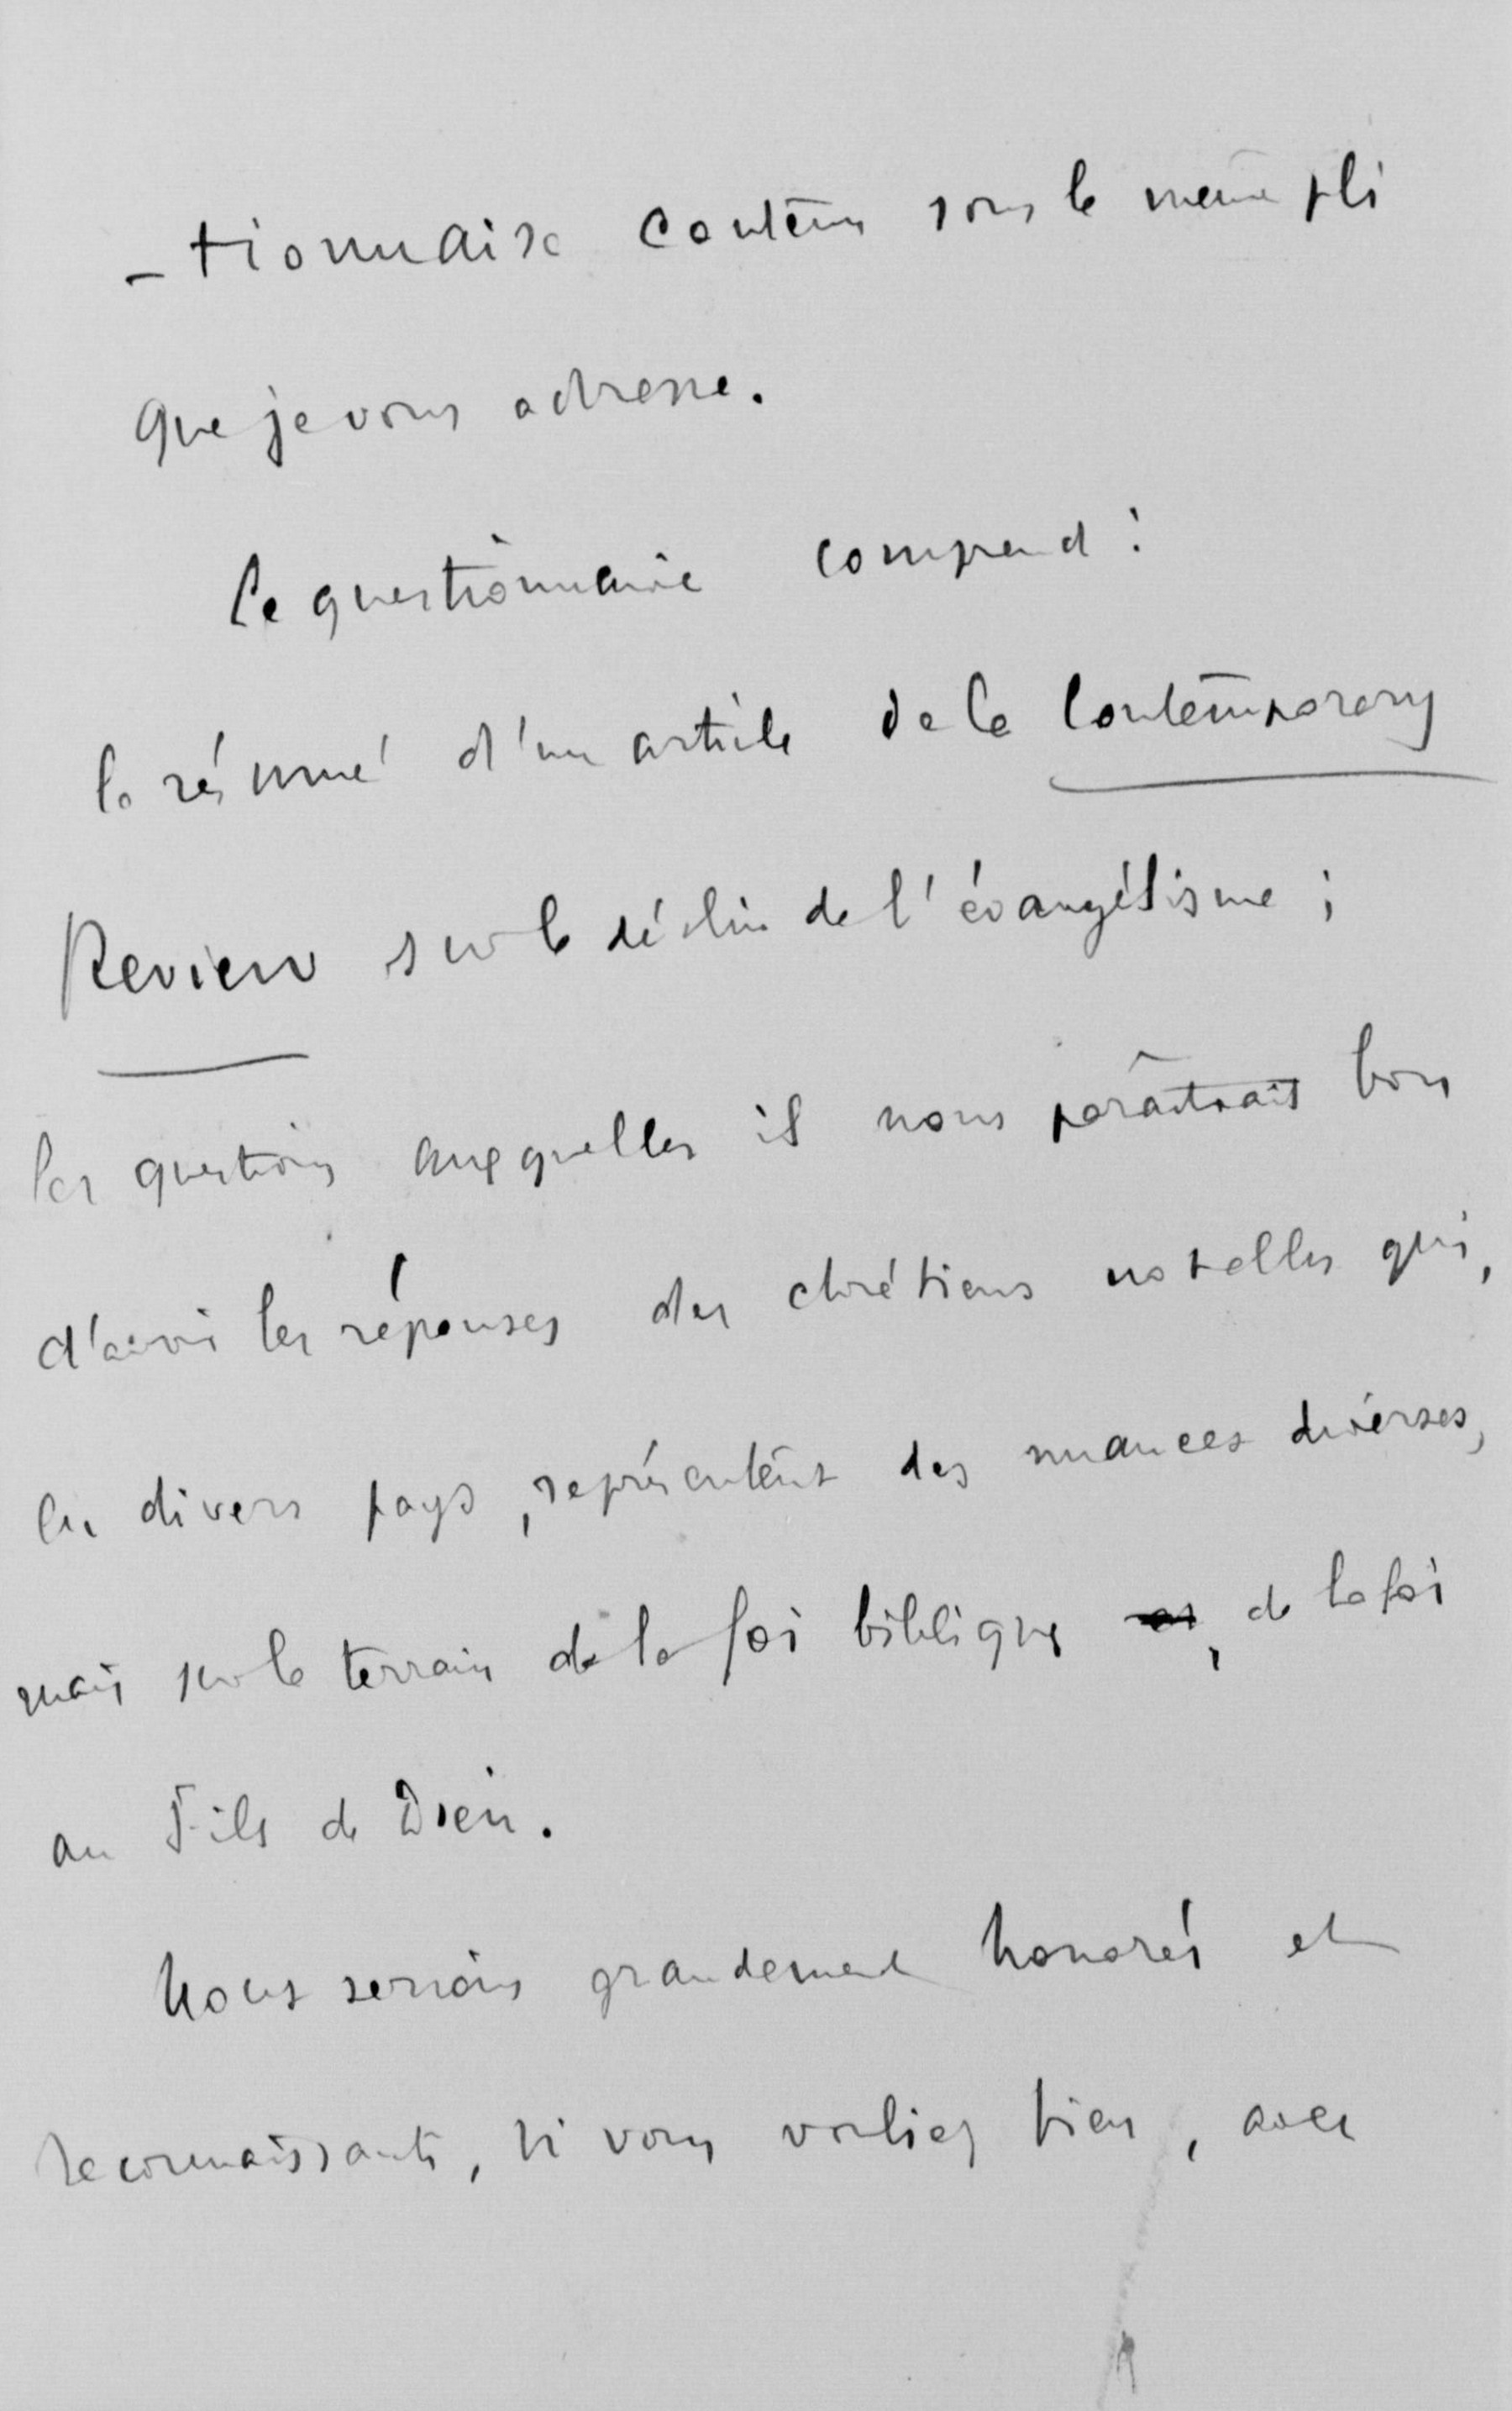 -tionnaire contenu sous le même pli
que je vous adresse.
Ce questionnaire comprend :
le résumé d'un article de la Contemporary
Review sur le déclin de l'évangélisme ;
les questions auxquelles il nous paraîtrait bon
d'avoir les réponses des chrétiens notables qui,
en divers pays, représentent des nuances diverses,
mais sur le terrain de la foi biblique, de la foi
au Fils de Dieu.
Nous serions grandement honorés et
reconnaissants, si vous vouliez bien, avec